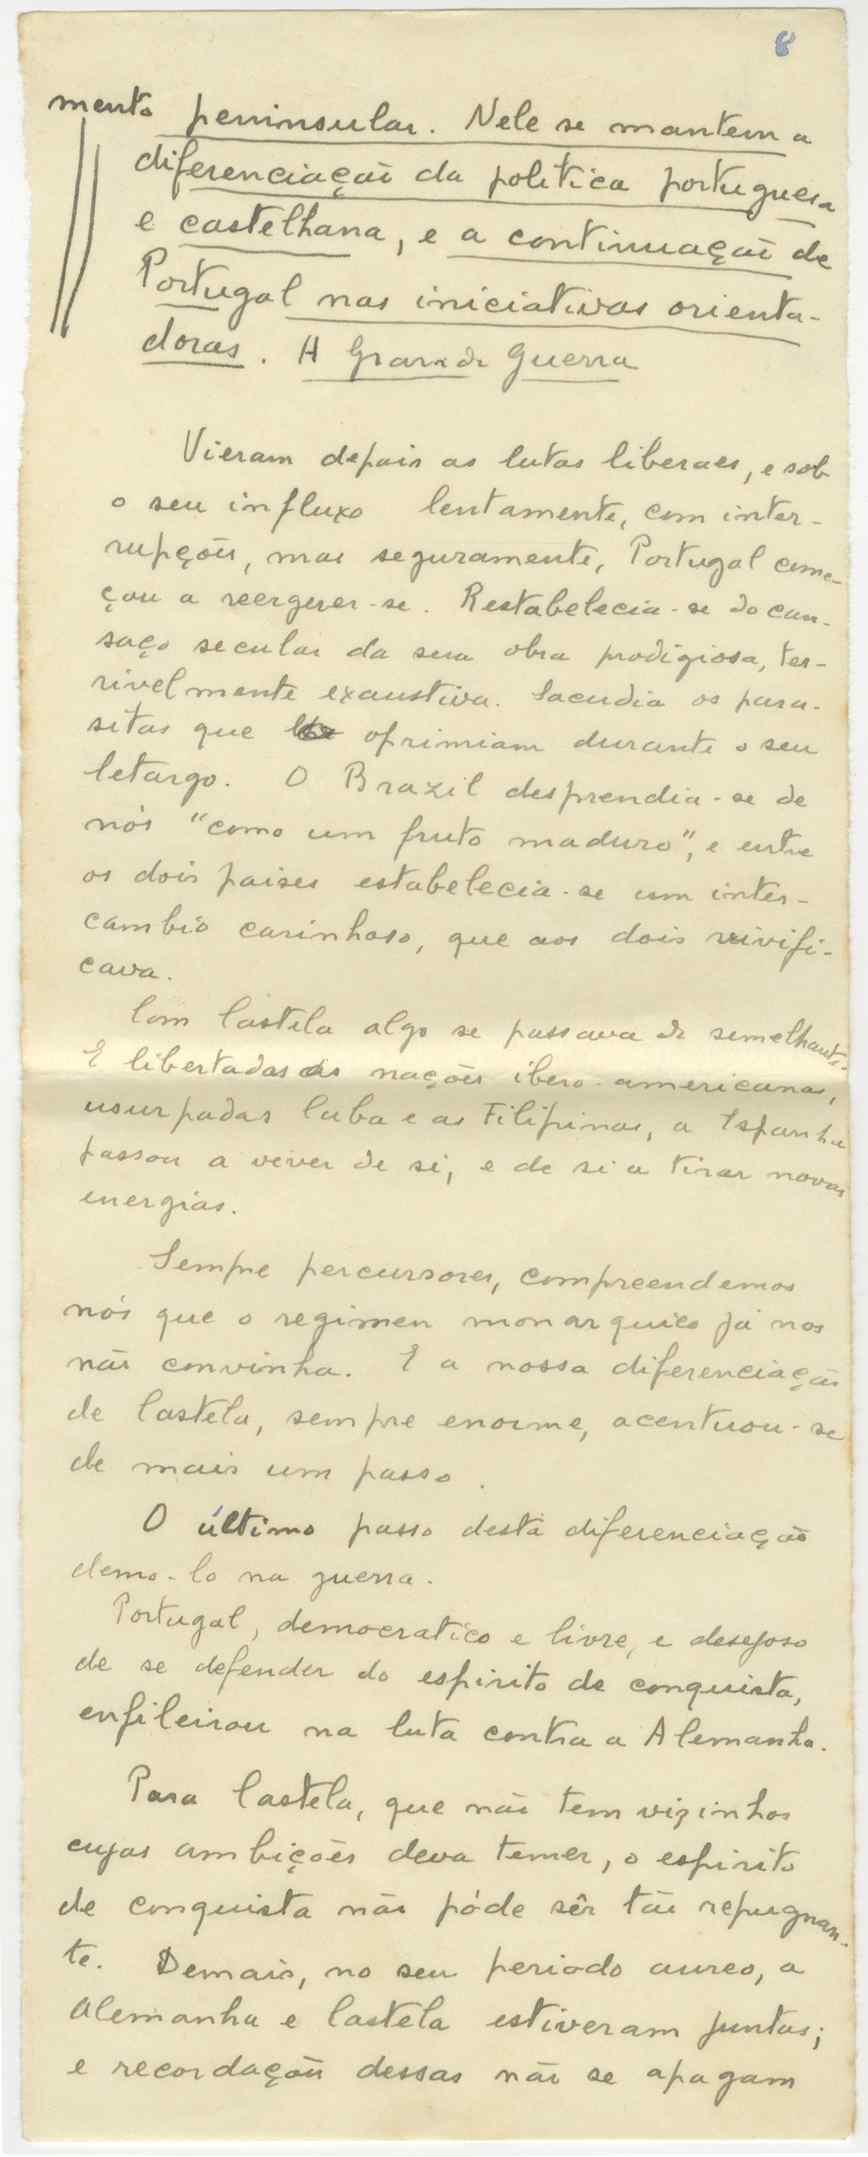 8
mento peninsular. Nele se mantem a
diferenciação da politica portuguesa
e castelhana, e a continuação de
Portugal nas iniciativas orienta-
doras. A Grande Guerra
Vieram depois as lutas liberaes, e sob
o seu influxo lentamente, com inter-
rupções, mas seguramente, Portugal come-
çou a reerguer-se. Restabelecia-se do can-
saço secular da sua obra prodigiosa, ter-
rivelmente exaustiva. Sacudia os para-
sitas que oprimiam durante o seu
letargo. O Brazil desprendia-se de
nós "como um fruto maduro", e entre
os dois paises estabelecia-se um inter-
cambio carinhoso, que aos dois vivifi-
cava.
Com Castela algo se passava de semelhante.
E libertadas as nações ibero-americanas,
usurpadas Cuba e as Filipinas, a Espanha
passou a viver de si, e de si a tirar novas
energias.
Sempre percursores, compreendemos
nós que o regimen monarquico já nos
não convinha. E a nossa diferenciação
de Castela, sempre enorme, acentuou-se
de mais um passo.
O último passo desta diferenciação
demo-lo na guerra.
Portugal, democratico e livre, e desejoso
de se defender do espirito de conquista,
enfileirou na luta contra a Alemanha.
Para Castela, que não tem vizinhos
cujas ambições deva temer, o espirito
de conquista não póde sêr tão repugnan-
te. Demais, no seu periodo aureo, a
Alemanha e Castela estiveram juntas;
e recordações dessas não se apagam